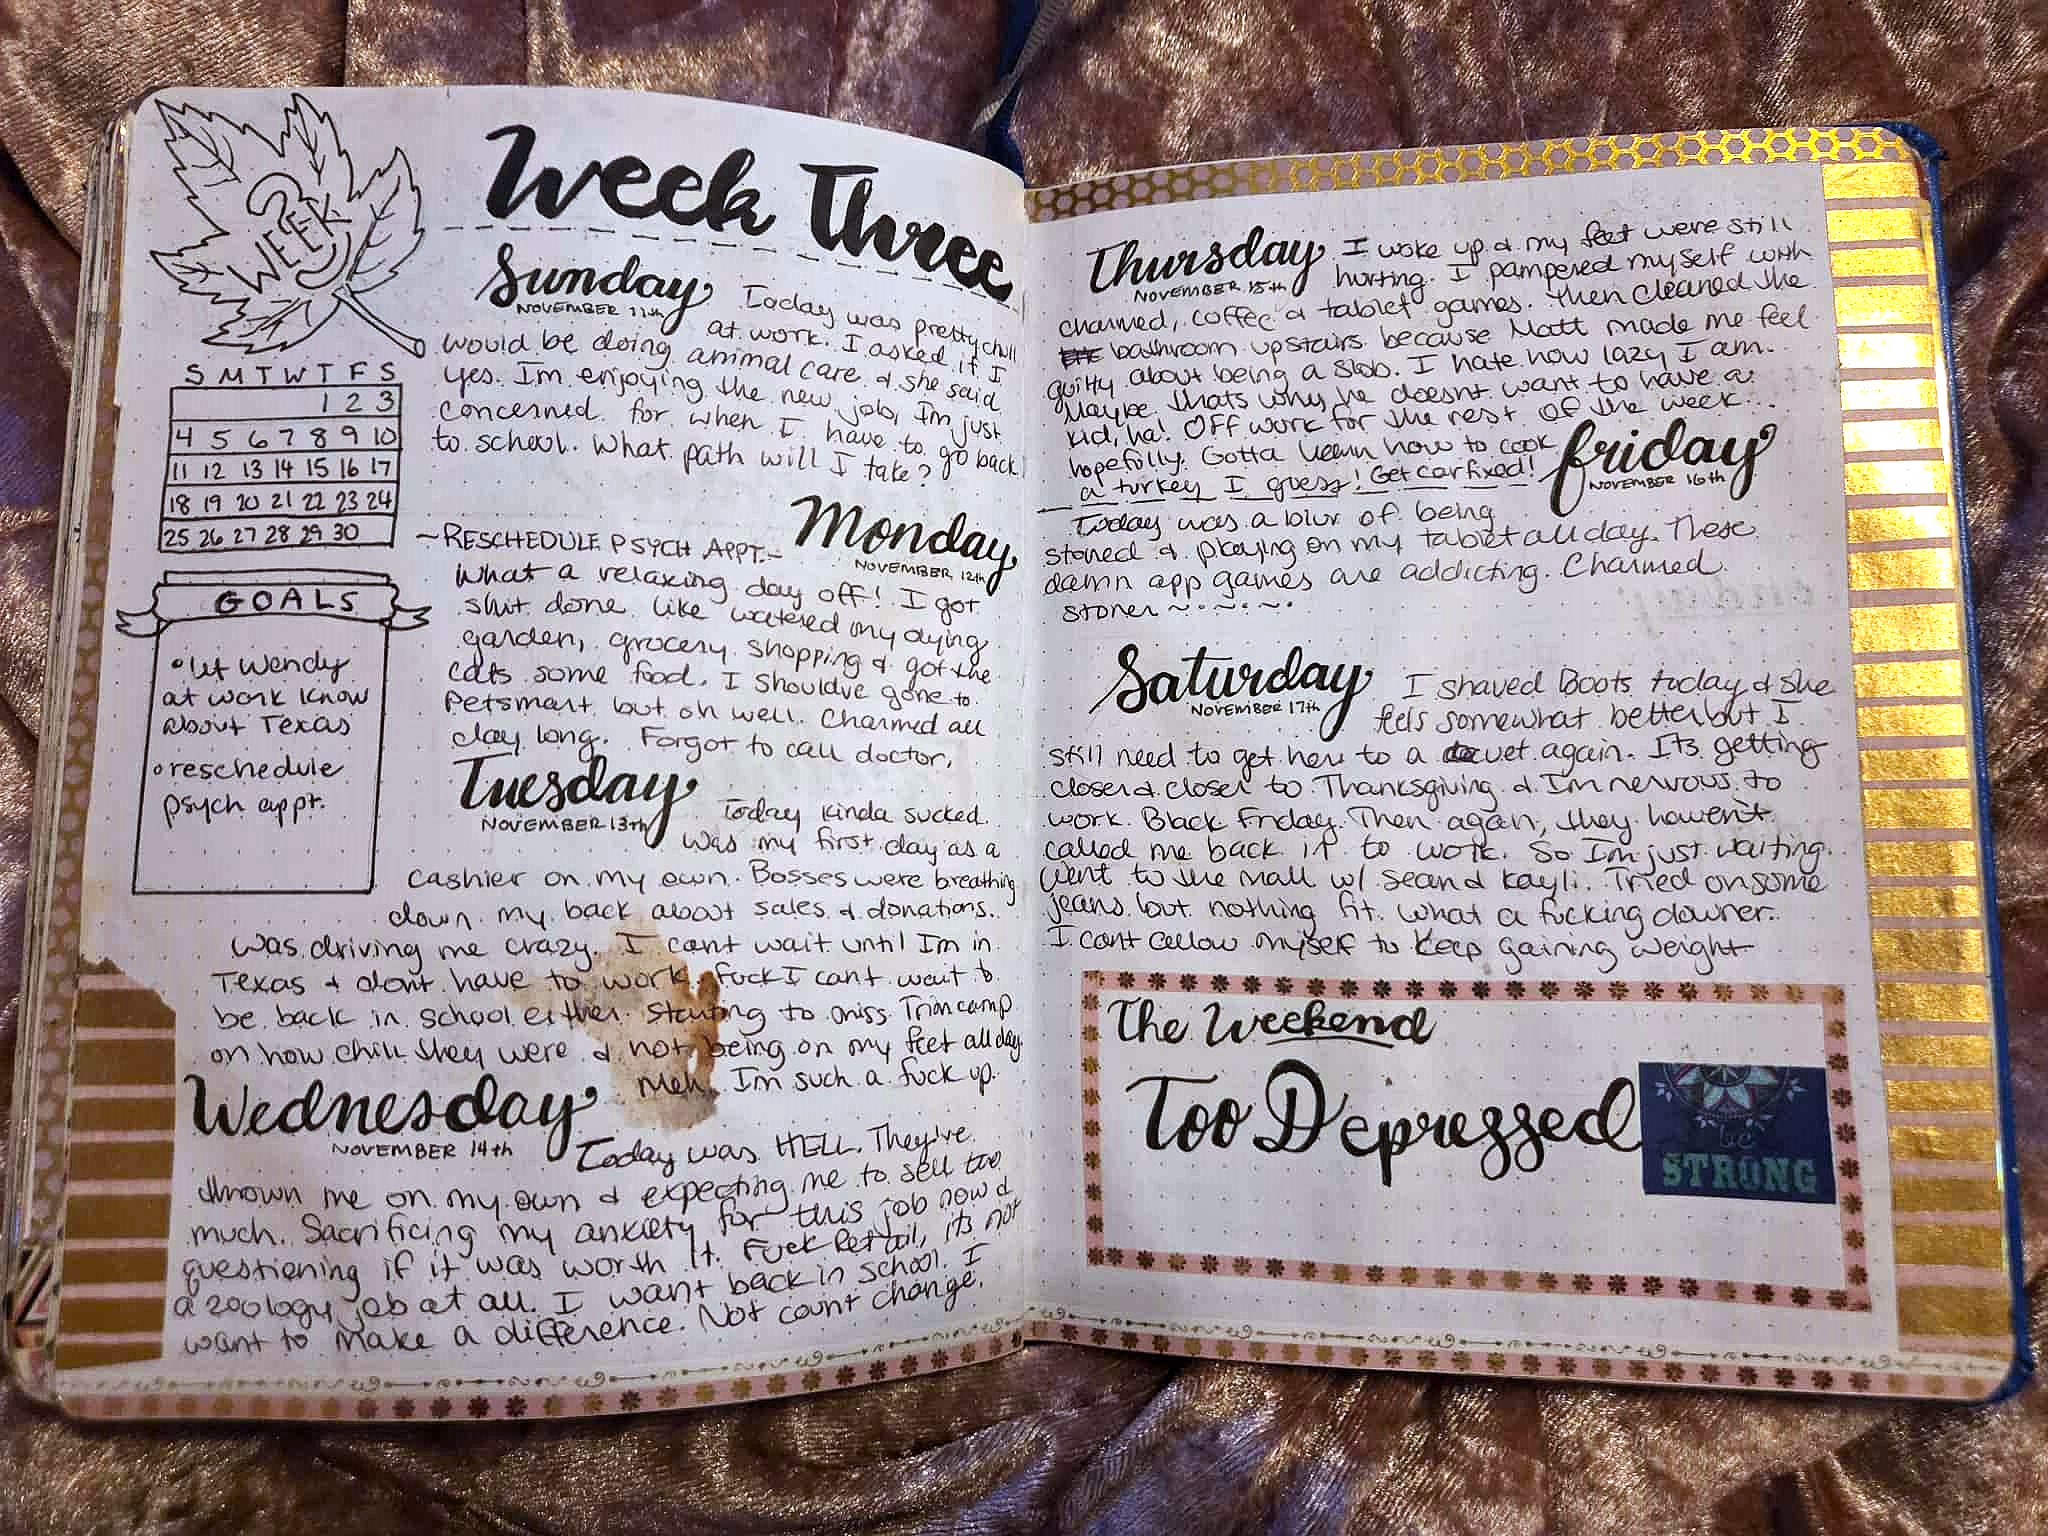 WEEK
3
Week Three
S M T W T F S
1 2 3
4 5 6 7 8 9 10
11 12 13 14 15 16 17
18 19 20 21 22 23 24
25 26 27 28 29 30
GOALS
• let Wendy
at work know
about Texas
• reschedule
psych appt.
Sunday
NOVEMBER 11th
Today was pretty chill
at work. I asked if I
would be doing animal care & she said
yes. Im enjoying the new job, Im just
concerned for when I have to go back
to school. What path will I take?
Monday
NOVEMBER 12th
~RESCHEDULE PSYCH APPT.~
What a relaxing day off! I got
shit done like watered my dying
garden, grocery shopping & got the
cats some food. I shouldve gone to
Petsmart but oh well. Charmed all
day long. Forgot to call doctor.
Tuesday
NOVEMBER 13th
Today kinda sucked.
Was my first day as a
cashier on my own. Bosses were breathing
down my back about sales & donations.
Was driving me crazy. I cant wait until Im in
Texas & dont have to work. Fuck I cant wait to
be back in school either. Starting to miss Trimcamp
on how chill they were & not being on my feet all day.
Meh. Im such a fuck up.
Wednesday
NOVEMBER 14th
Today was HELL. They've
thrown me on my own & expecting me to sell too
much. Sacrificing my anxiety for this job now &
questioning if it was worth it. Fuck Retail, its not
a zoology job at all. I want back in school. I
want to make a difference. Not count change.
Thursday
NOVEMBER 15th
I woke up & my feet were still
hurting. I pampered myself with
charmed, coffee & tablet games. Then cleaned the
bathroom upstairs because Matt made me feel
guilty about being a slob. I hate how lazy I am.
Maybe thats why he doesnt want to have a
kid, ha! Off work for the rest of the week...
hopefully. Gotta learn how to cook
a turkey I guess! Get car fixed!
Friday
NOVEMBER 16th
Today was a blur of being
stoned & playing on my tablet all day. These
damn app games are addicting. Charmed
stoner ~·~·~·
Saturday
NOVEMBER 17th
I shaved Boots today & she
feels somewhat better but I
still need to get her to a vet again. Its getting
closer & closer to Thanksgiving & Im nervous to
work Black Friday. Then again, they haven't
called me back in to work. So Im just waiting.
Went to the mall w/ Sean & Kayli. Tried on some
jeans but nothing fit. What a fucking downer.
I cant allow myself to keep gaining weight
The Weekend
Too Depressed
be
STRONG